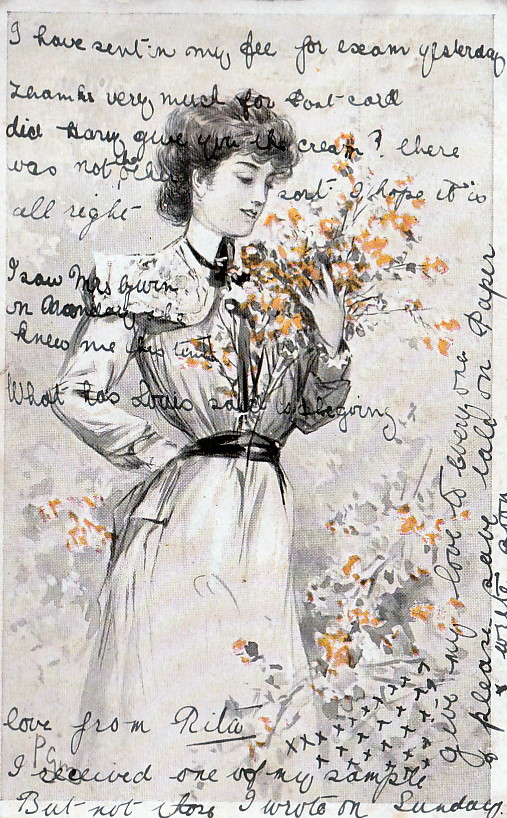 I have sent in my fee for exam yesterday
Thanks very much for Post-card
did Harry give you the cream? there
was not the other sort I hope it is
all right
I saw Mrs
on Monday she
knew me this time
What has Louis said
love from Rita
I received one of my sample
But not I wrote on Sunday.
give my love to everyone
& please save lald on Paper
& write soon
xxx